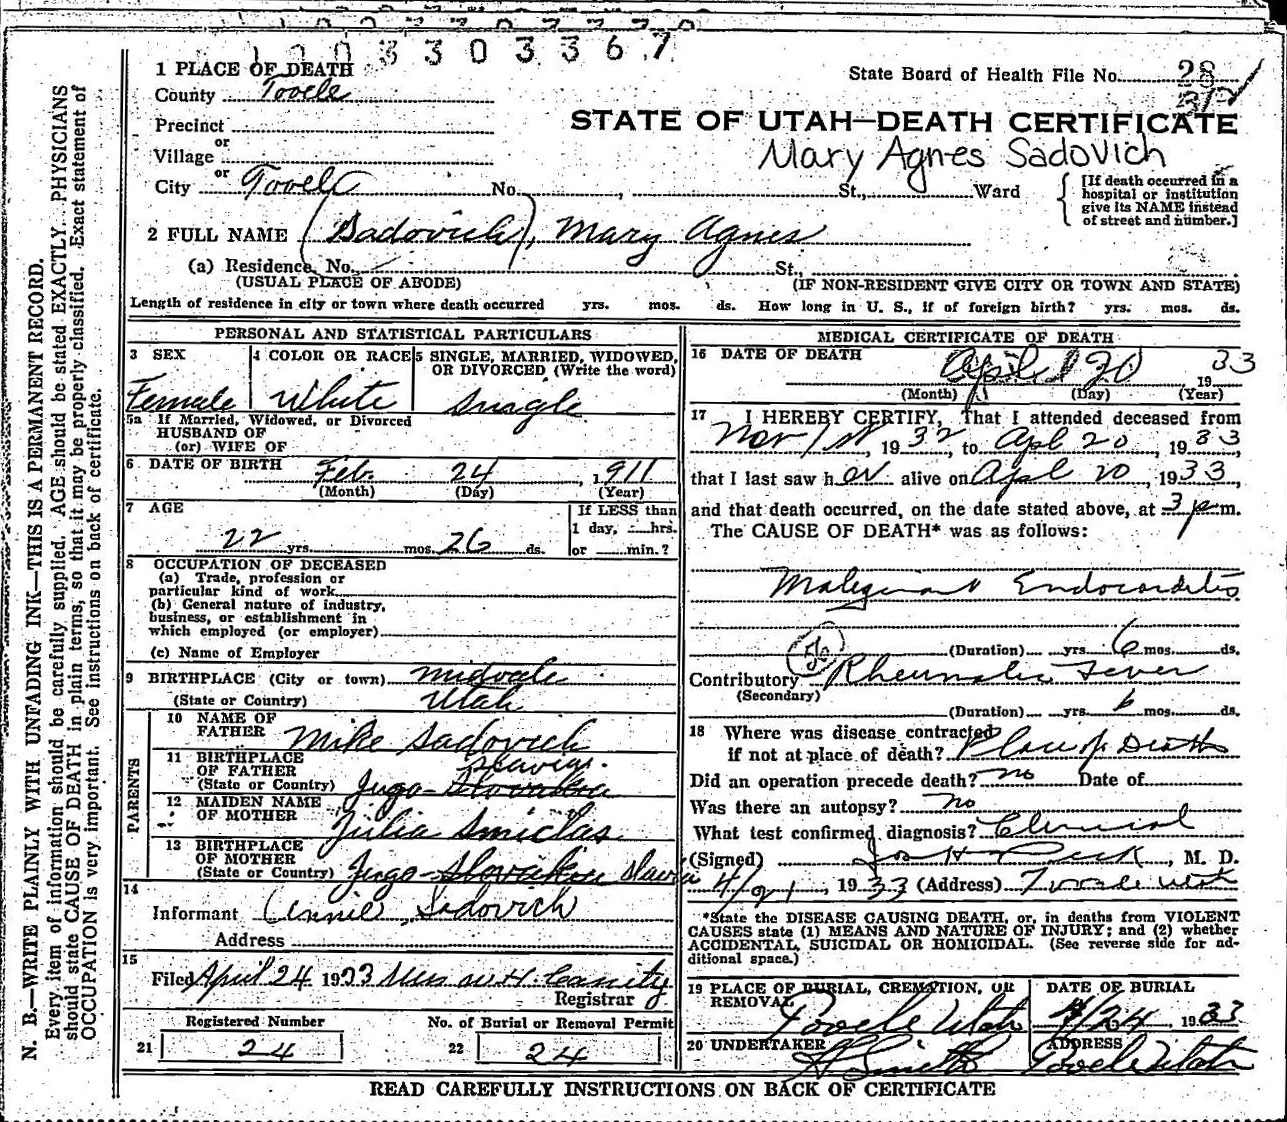 1 2 0 3 3 0 3 3 6 7
1 PLACE OF DEATH
State Board of Health File No. 28
312
County Tooele
Precinct
or
Village
or
City Tooele No. , St., Ward
STATE OF UTAH—DEATH CERTIFICATE
Mary Agnes Sadovich
[If death occurred in a
hospital or institution
give its NAME instead
of street and number.]
2 FULL NAME (Sadovich), Mary Agnes
(a) Residence, No. St.,
(USUAL PLACE OF ABODE) (IF NON-RESIDENT GIVE CITY OR TOWN AND STATE)
Length of residence in city or town where death occurred yrs. mos. ds. How long in U. S., if of foreign birth? yrs. mos. ds.
PERSONAL AND STATISTICAL PARTICULARS
3 SEX
Female
4 COLOR OR RACE
White
5 SINGLE, MARRIED, WIDOWED,
OR DIVORCED (Write the word)
Single
5a If Married, Widowed, or Divorced
HUSBAND OF
(or) WIFE OF
6 DATE OF BIRTH Feb. 24, 1911
(Month) (Day) (Year)
7 AGE
22 yrs. mos. 26 ds.
If LESS than
1 day, hrs.
or min.?
8 OCCUPATION OF DECEASED
(a) Trade, profession or
particular kind of work
(b) General nature of industry,
business, or establishment in
which employed (or employer)
(c) Name of Employer
9 BIRTHPLACE (City or town) Midvale
(State or Country) Utah
PARENTS
10 NAME OF
FATHER Mike Sadovich
11 BIRTHPLACE
OF FATHER slavia.
(State or Country) Jugo-Slovakia
12 MAIDEN NAME
OF MOTHER Julia Smiclas
13 BIRTHPLACE
OF MOTHER
(State or Country) Jugo-Slovakia slavia
14
Informant Annie Sadovich
Address
15
Filed April 24 1933 W.H. Cassity
Registrar
Registered Number
21 24
No. of Burial or Removal Permit
22 24
MEDICAL CERTIFICATE OF DEATH
16 DATE OF DEATH April 20 1933
(Month) (Day) (Year)
17 I HEREBY CERTIFY, That I attended deceased from
Nov 1st, 1932, to Apl 20, 1933,
that I last saw her alive on Apl 20, 1933,
and that death occurred, on the date stated above, at 3 p m.
The CAUSE OF DEATH* was as follows:
Malignant Endocarditis
(Duration) yrs. 6 mos. ds.
Contributory Rheumatic Fever
(Secondary)
(Duration) yrs. 6 mos. ds.
18 Where was disease contracted
if not at place of death? Place of Death
Did an operation precede death? no Date of
Was there an autopsy? no
What test confirmed diagnosis? Clinical
(Signed) Jos H Peck, M. D.
4/21, 1933 (Address) Tooele Utah
*State the DISEASE CAUSING DEATH, or, in deaths from VIOLENT
CAUSES state (1) MEANS AND NATURE OF INJURY; and (2) whether
ACCIDENTAL, SUICIDAL OR HOMICIDAL. (See reverse side for ad-
ditional space.)
19 PLACE OF BURIAL, CREMATION, OR
REMOVAL
Tooele Utah
DATE OF BURIAL
4/24, 1933
20 UNDERTAKER
Smith
ADDRESS
Tooele Utah
READ CAREFULLY INSTRUCTIONS ON BACK OF CERTIFICATE
N. B.—WRITE PLAINLY WITH UNFADING INK—THIS IS A PERMANENT RECORD.
Every item of information should be carefully supplied. AGE should be stated EXACTLY. PHYSICIANS
should state CAUSE OF DEATH in plain terms, so that it may be properly classified. Exact statement of
OCCUPATION is very important. See instructions on back of certificate.